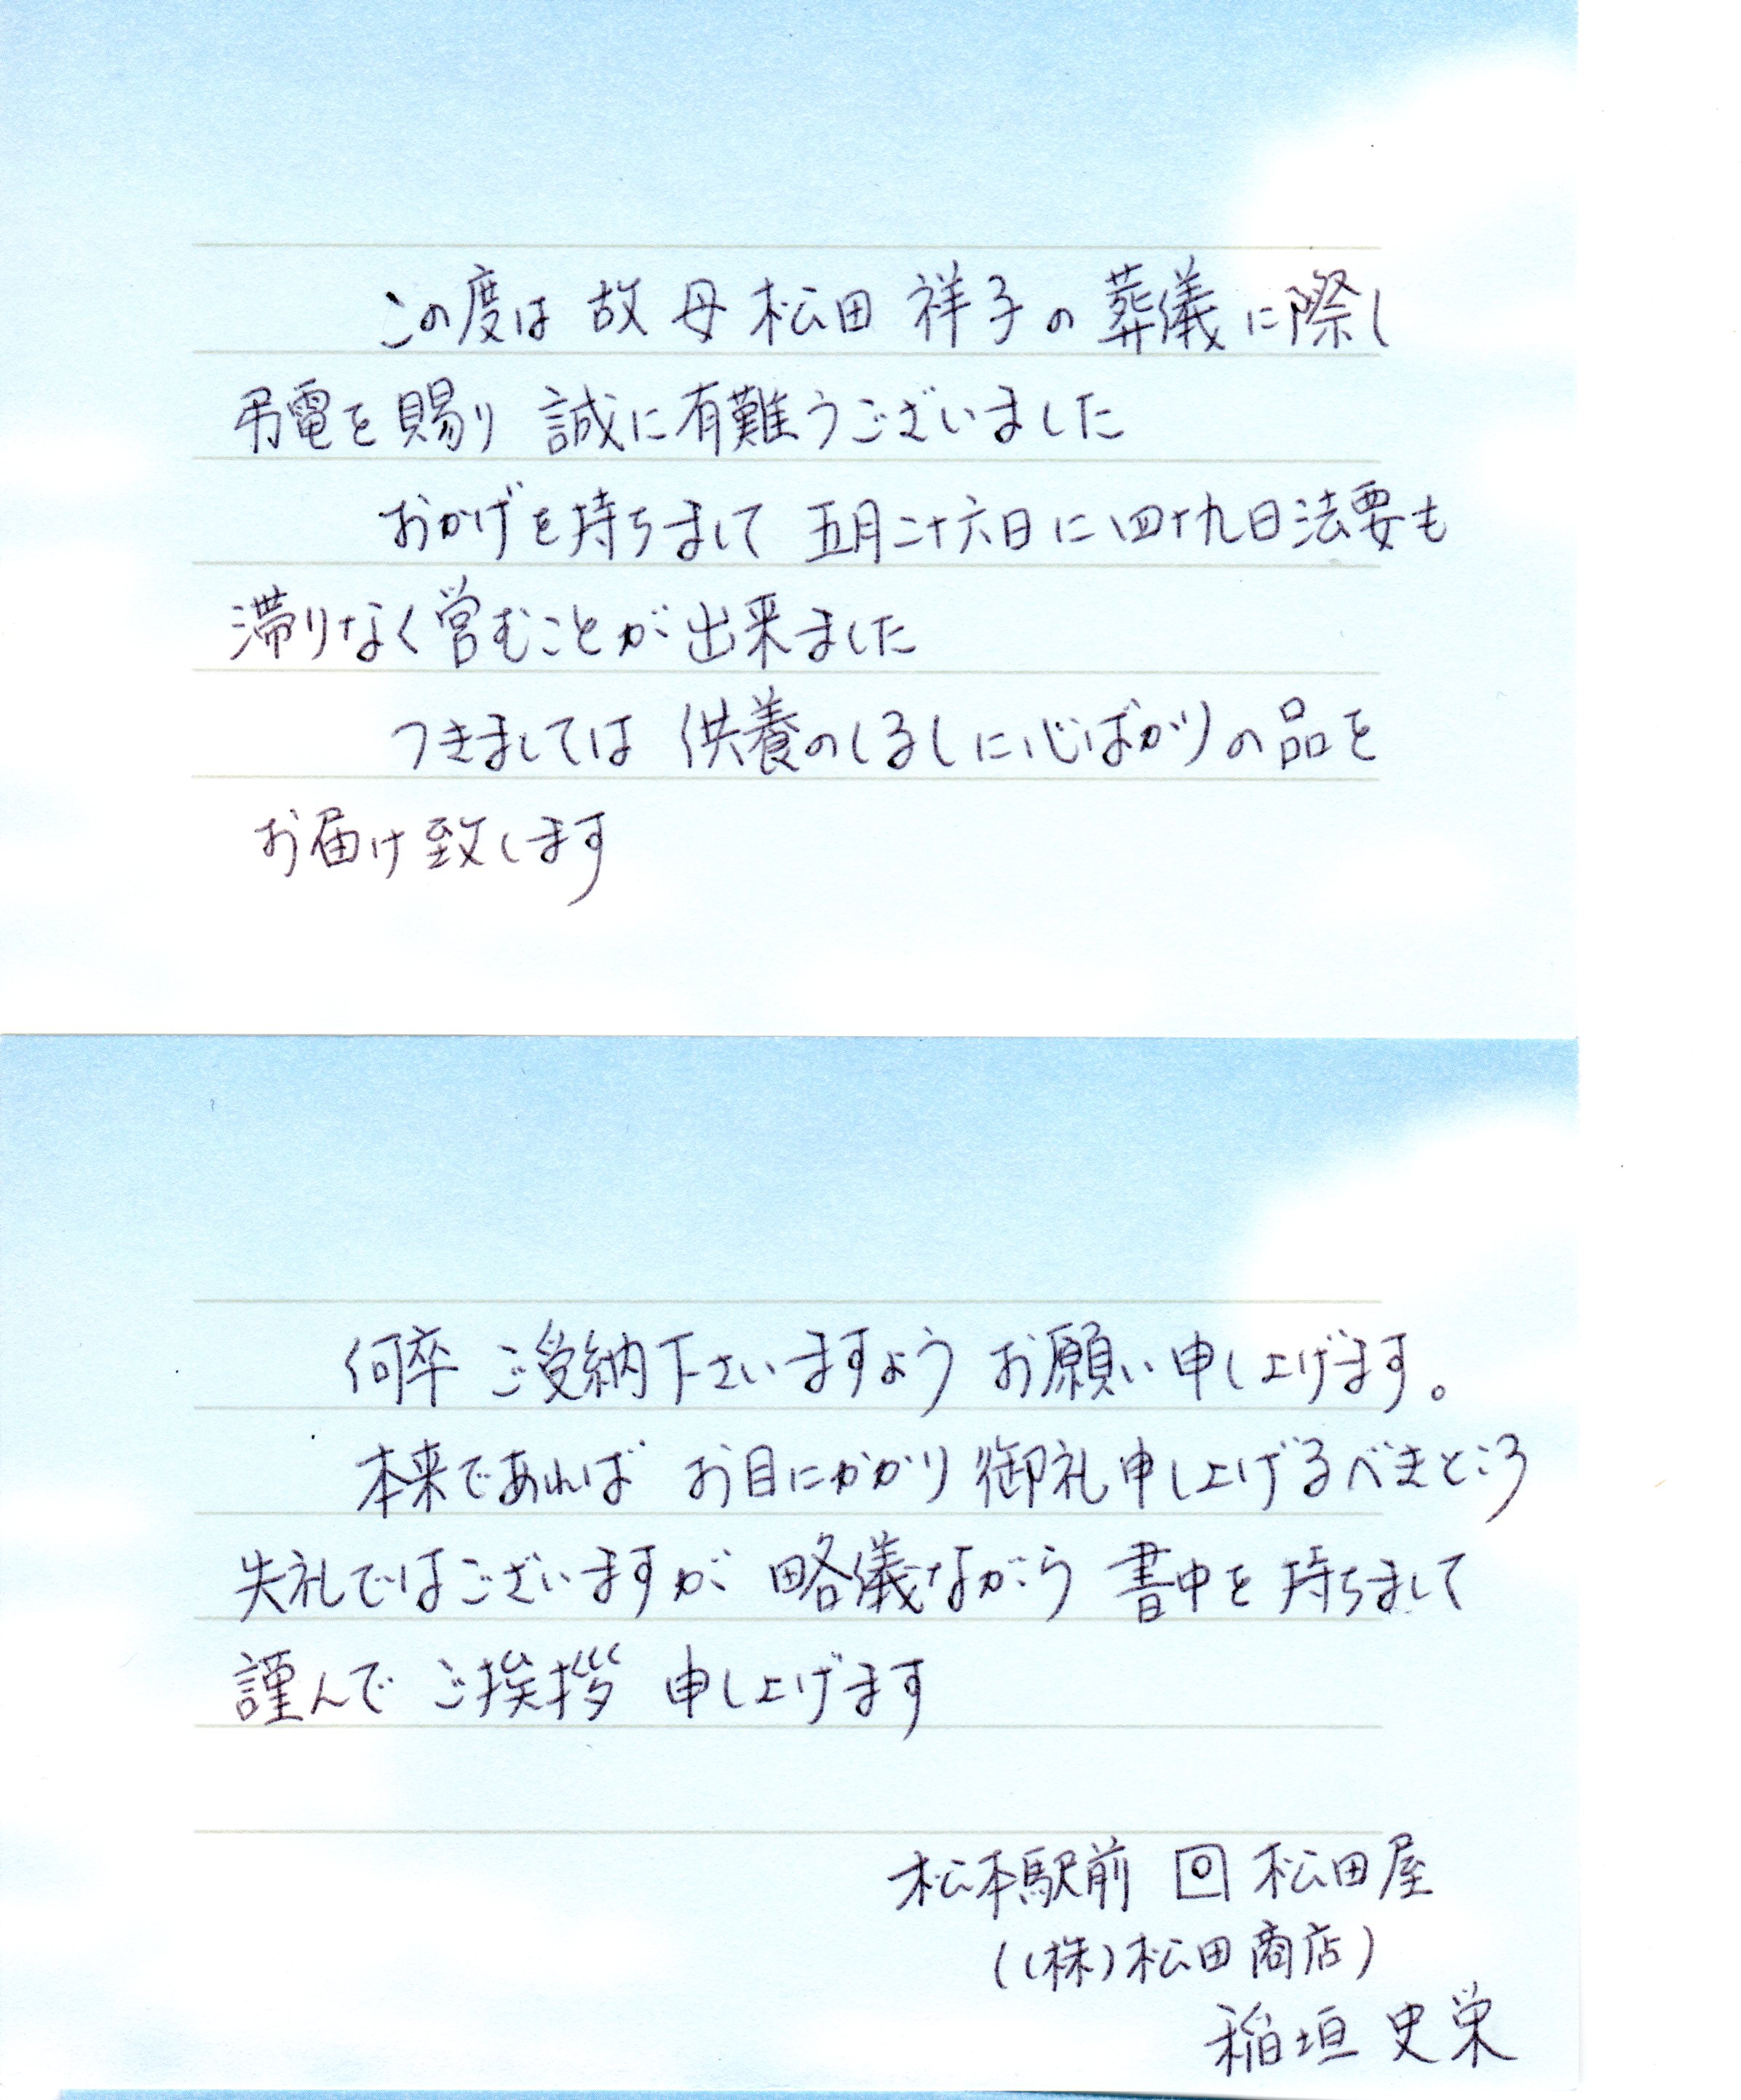 この度は 故 母 松田 祥子の 葬儀に際し
弔電を賜り 誠に有難うございました
おかげを持ちまして 五月二十六日に四十九日法要も
滞りなく営むことが出来ました
つきましては 供養のしるしに心ばかりの品を
お届け致します
何卒 ご受納下さいますよう お願い申し上げます。
本来であれば お目にかかり御礼申し上げるべきところ
失礼ではございますが 略儀ながら 書中を持ちまして
謹んで ご挨拶 申し上げます
松本駅前 回 松田屋
((株)松田商店)
稲垣 史栄